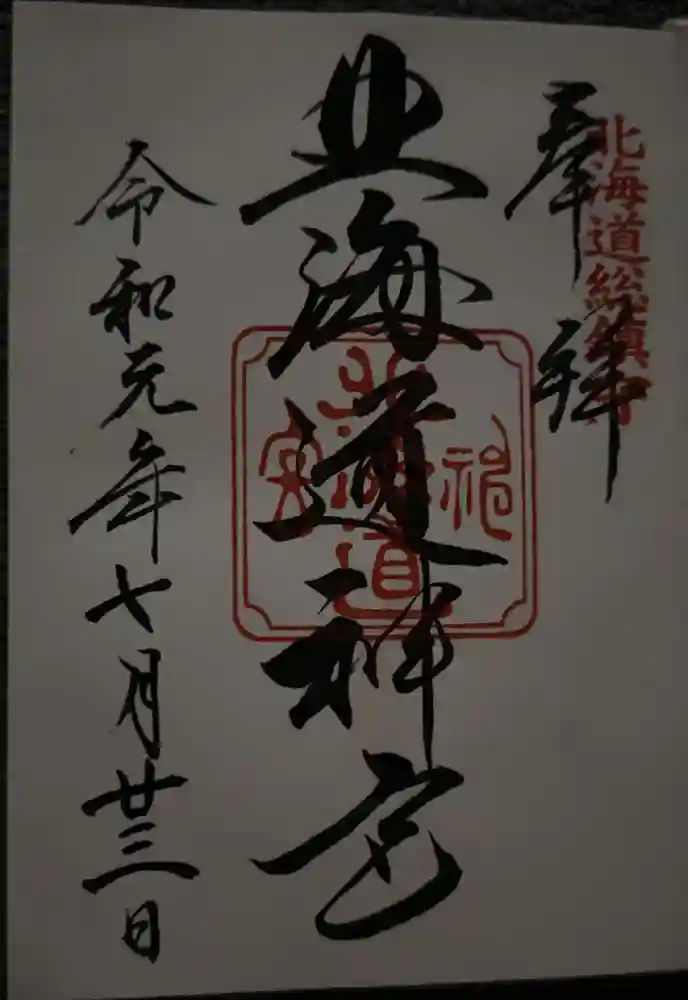 奉拝
北海道総鎮守
北海道神宮
北海道神宮
令和元年七月廿三日